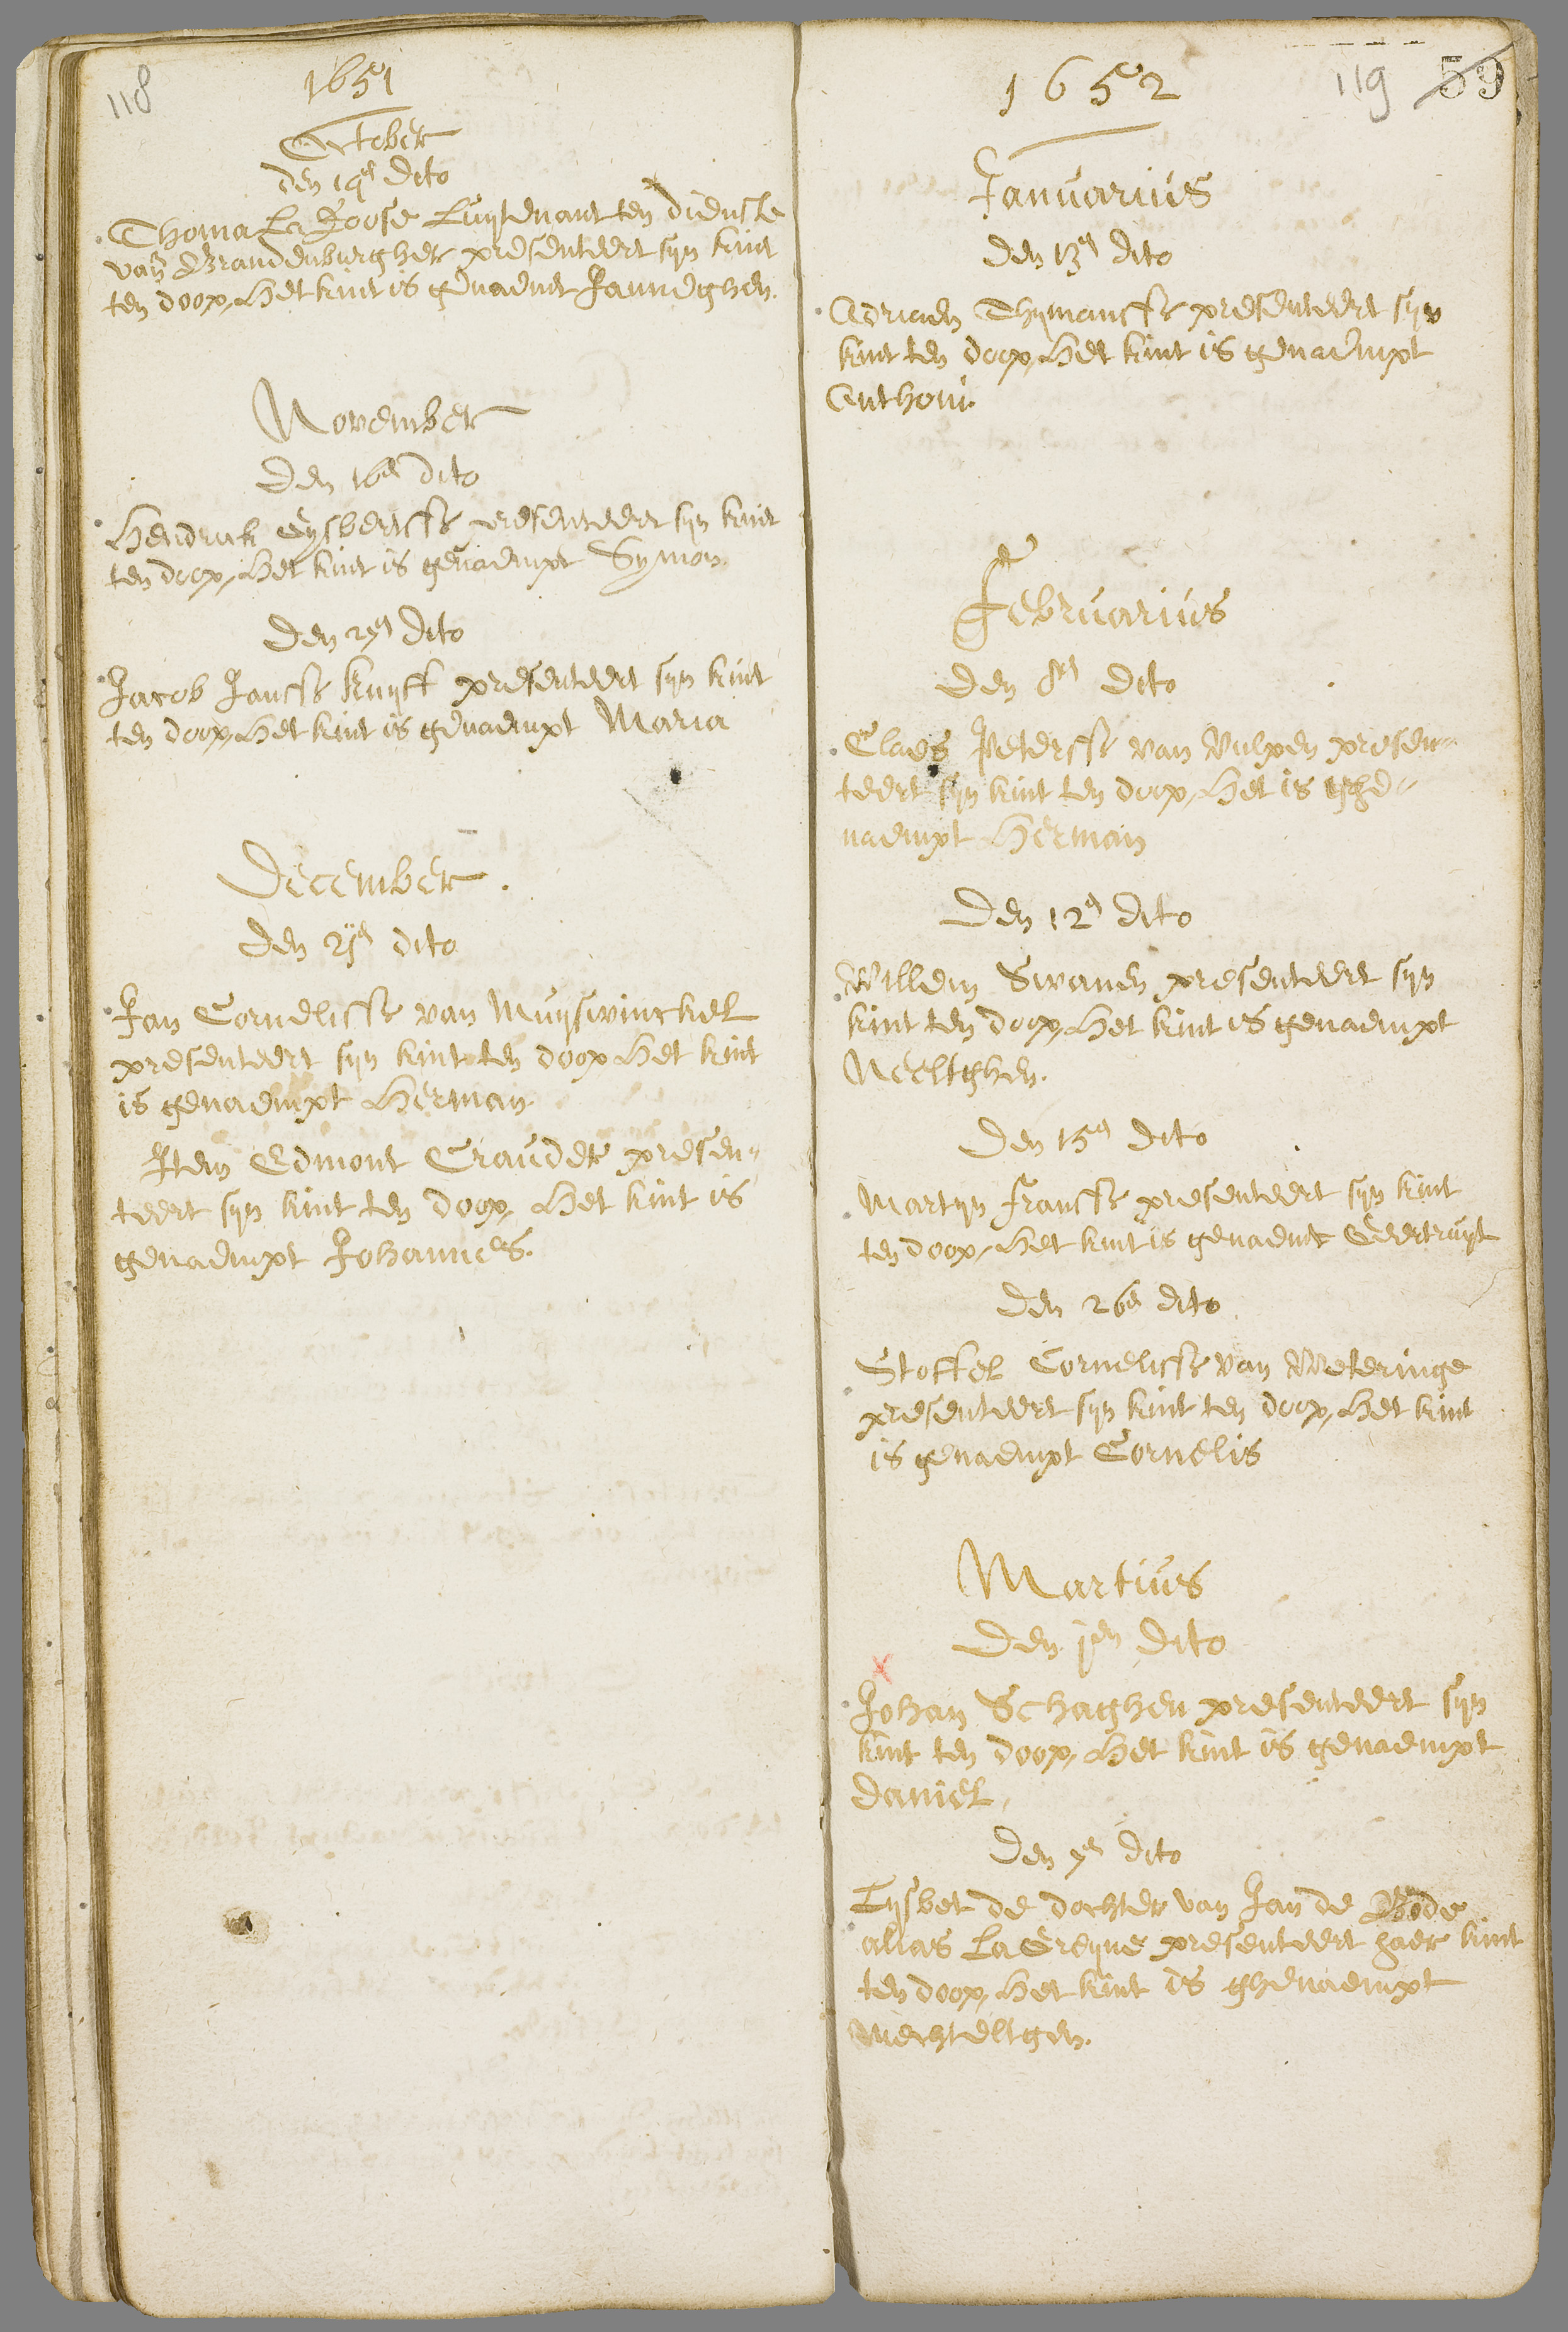 118
1651
October
den 19en dito
Thoma La Roose Luytenant ten dienste
van Brandenburgher presenteert syn kint
ten doop, Het kint is genaemt Janneghen.
November
Den 16en dito
Hendrick Gysbertsse presenteert syn kint
ten doop, Het kint is genaempt Symon
Den 27en dito
Jacob Jansse kuyff presenteert syn kint
ten doop, Het kint is genaempt Maria
December.
Den 25en dito
Jan Cornelisse van Muyswinckel
presenteert syn kint ten doop Het kint
is genaempt Herman
Item Edmont Crauder presen„
teert syn kint ten doop, Het kint is
genaempt Johannes.
1652
119 59
Januarius
Den 13en dito
Adriaen Thymansse presenteert syn
kint ten doop, Het kint is genaempt
Anthoni
Februarius
Den 8en dito
Claes Petersse van Vulpen presen„
teert syn kint ten doop, Het is ghe„
naempt Herman
Den 12en dito
Willem Swanen presenteert syn
kint ten doop, Het kint is genaempt
Neeltghen.
Den 15en dito
Martyn Fransse presenteert syn kint
ten doop, Het kint is genaemt Geertruyt
Den 26en dito
Stoffel Cornelisse van Weteringe
presenteert syn kint ten doop, Het kint
is genaempt Cornelis
Martius
Den jen dito
Johan Schaghen presenteert syn
kint ten doop, Het kint is genaempt
Daniel,
Den 7en dito
Lysbet de dochter van Jan de Bode
alias La Greyne presenteert haer kint
ten doop, Het kint is ghenaempt
Mechteltgen.